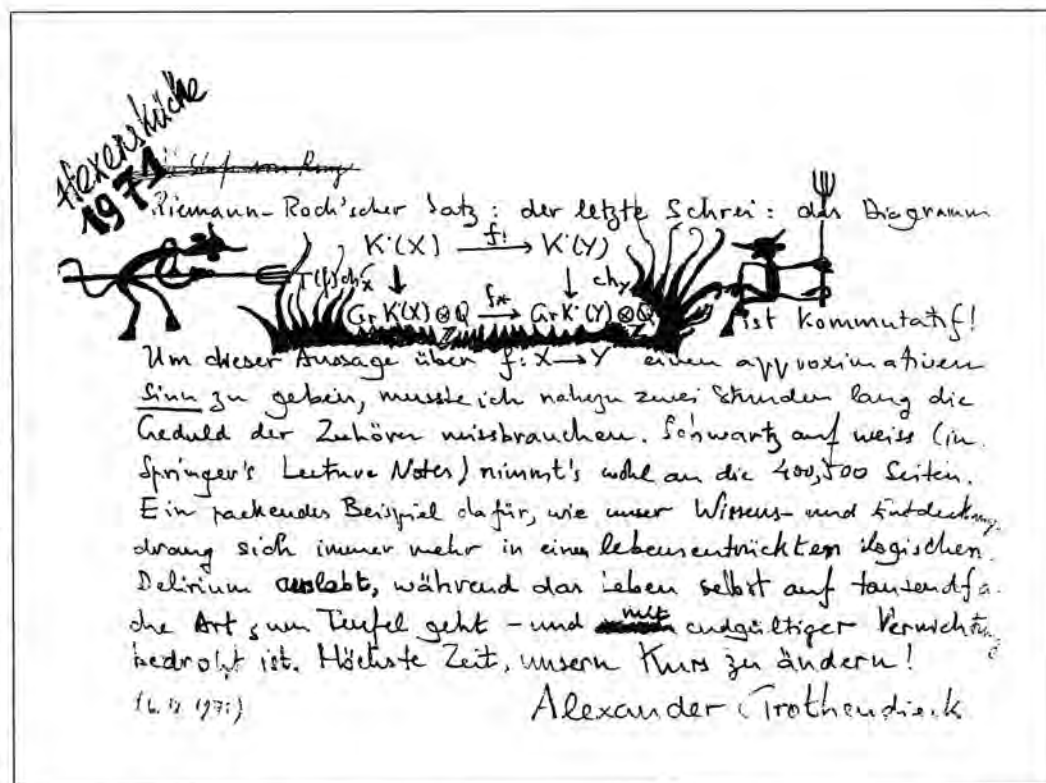 Hexenküche
1971
Riemann-Roch'scher Satz: der letzte Schrei: das Diagramm
K˙(X) f! → K˙(Y)
↓ T(f)ch_X ↓ ch_Y
Gr K˙(X)⊗Q f* → Gr K˙(Y)⊗Q
Z Z
ist kommutatif!
Um dieser Aussage über f: X → Y einen approximativen
Sinn zu geben, musste ich nahezu zwei Stunden lang die
Geduld der Zuhörer missbrauchen. Schwartz auf weiss (in
Springer's Lecture Notes) nimmt's wohl an die 400,500 Seiten.
Ein packendes Beispiel dafür, wie unser Wissens- und Entdeckungs
drang sich immer mehr in einem lebensentrückten logischen
Delirium auslebt, während das Leben selbst auf tausendfa-
che Art zum Teufel geht - und mit endgültiger Vernichtung
bedroht ist. Höchste Zeit, unsern Kurs zu ändern!
(16.12.1971) Alexander Grothendieck